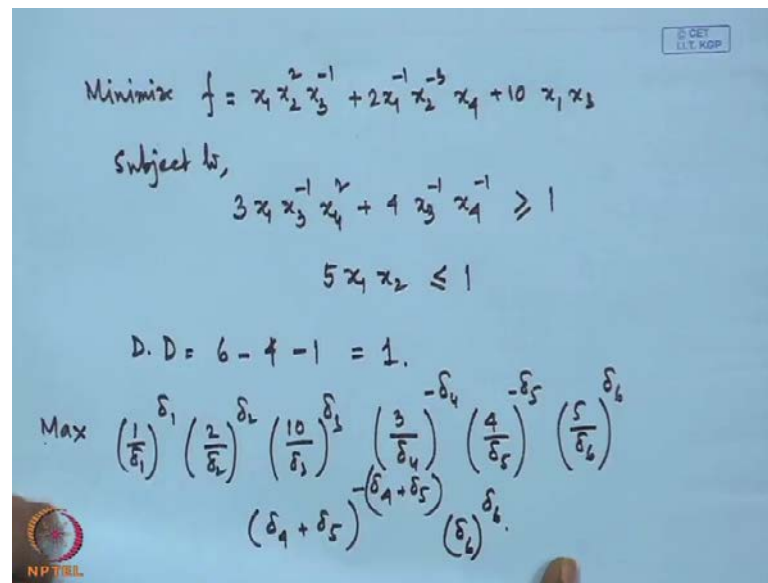 © CET
I.I.T. KGP
Minimize f = x₁ x₂² x₃⁻¹ + 2x₁⁻¹ x₂⁻³ x₄ + 10 x₁ x₃
Subject to,
3 x₁ x₃⁻¹ x₄² + 4 x₃⁻¹ x₄⁻¹ ⩾ 1
5 x₁ x₂ ≤ 1
D.D = 6 - 4 - 1 = 1.
Max (1/δ₁)^δ₁ (2/δ₂)^δ₂ (10/δ₃)^δ₃ (3/δ₄)^-δ₄ (4/δ₅)^-δ₅ (5/δ₆)^δ₆
(δ₄ + δ₅)^-(δ₄+δ₅) (δ₆)^δ₆.
NPTEL